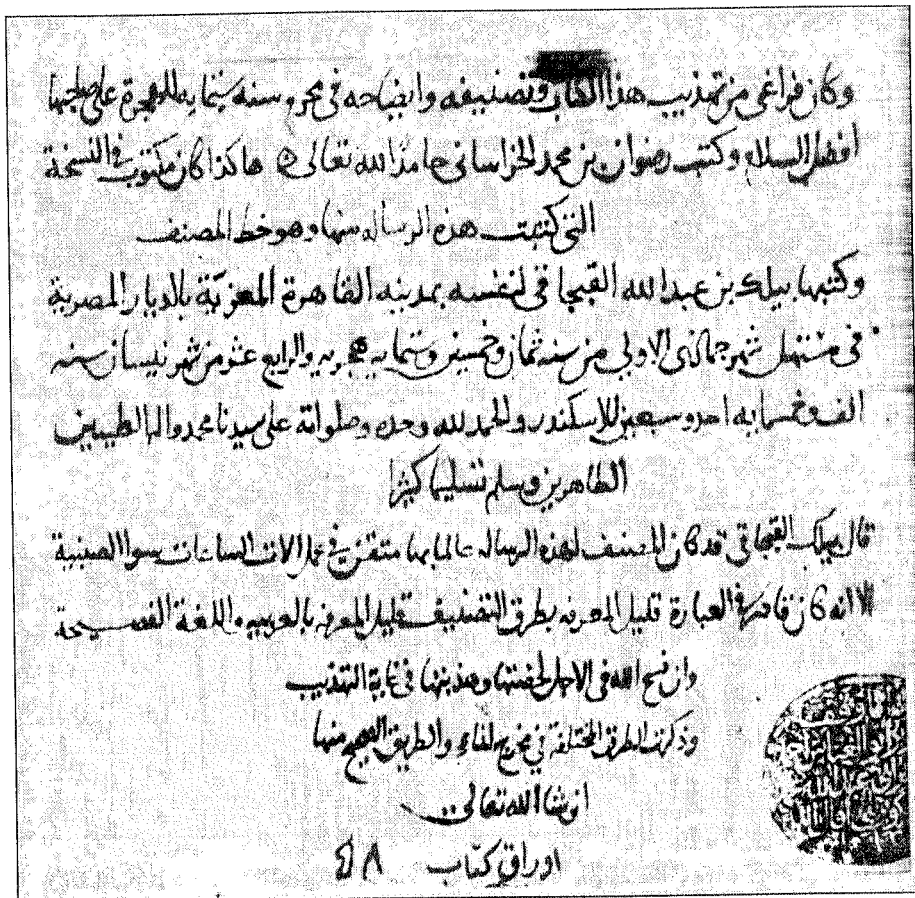 وكان فراغي من تهذيب هذا الكتاب وتصنيفه وايضاحه في محرم سنه ستمايه للهجرة على صاحبها
افضل السلام وكتب رضوان بن محمد الخراساني حامدًا لله تعالى ۞ هاكذا كان مكتوب في النسخة
التي كتبت هذه الرساله منها وهو خط المصنف
وكتبها بيلك بن عبدالله القبجاقي لنفسه بمدينه القاهرة المعزيّة بالديار المصرية
في مستهل شهر جمادى الاولى من سنه ثمان وخمسين وستمايه هجريه والرابع عشر من شهر نيسان سنه
الف وخمسمايه احد وسبعين للاسكندر والحمد لله وحده وصلواته على سيدنا محمد واله الطيبين
الطاهرين وسلم تسليما كثيرا
قال بيلك القبجاقي قد كان المصنف لهذه الرساله عالما بها متقن في عمل الات الساعات سوا الصينية
الا انه كان قاصر في العبارة قليل المعرفه بطرق التصنيف قليل المعرفه بالعربيه واللغة الفصيحة
وان فسح الله في الاجل لخصتها وهذبتها في غاية التهذيب
وذكرت الطرق المختلفة في والطريق الصحيح منها
ان شا الله تعالى
اوراق كتاب